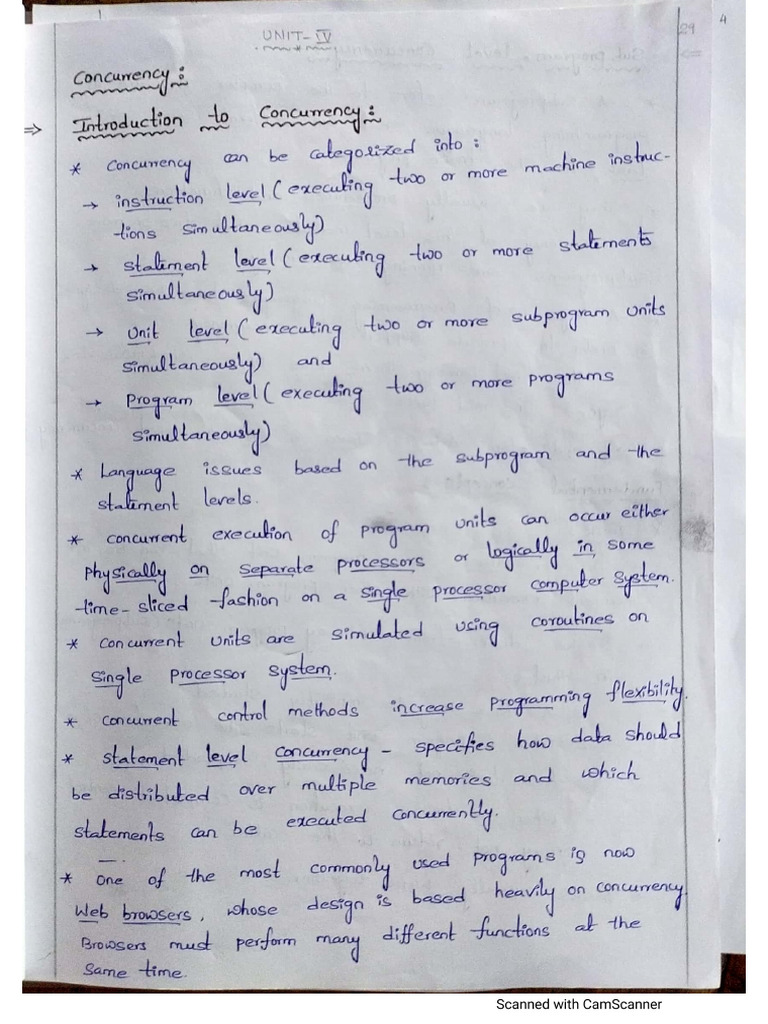 UNIT-IV
29
4
Concurrency:
⇒ Introduction to Concurrency:
* Concurrency can be categorized into:
→ instruction level (executing two or more machine instruc-
tions simultaneously)
→ statement level (executing two or more statements
simultaneously)
→ Unit level (executing two or more subprogram units
simultaneously) and
→ Program level (executing two or more programs
simultaneously)
* Language issues based on the subprogram and the
statement levels.
* concurrent execution of program units can occur either
physically on separate processors or logically in some
time-sliced fashion on a single processor computer system.
* concurrent units are simulated using coroutines on
single processor system.
* concurrent control methods increase programming flexibility.
* statement level concurrency - specifies how data should
be distributed over multiple memories and which
statements can be executed concurrently.
* one of the most commonly used programs is now
Web browsers, whose design is based heavily on concurrency
Browsers must perform many different functions at the
same time.
Scanned with CamScanner